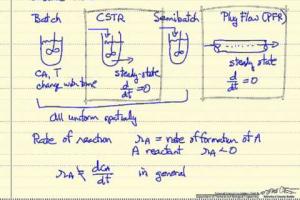 Batch
CSTR
Semibatch
Plug Flow (PFR)
CA, T
change w/ time
steady-state
d/dt = 0
steady state
d/dt = 0
all uniform spatially
Rate of reaction rA = rate of formation of A
A reactant rA < 0
rA ≠ dCA/dt in general